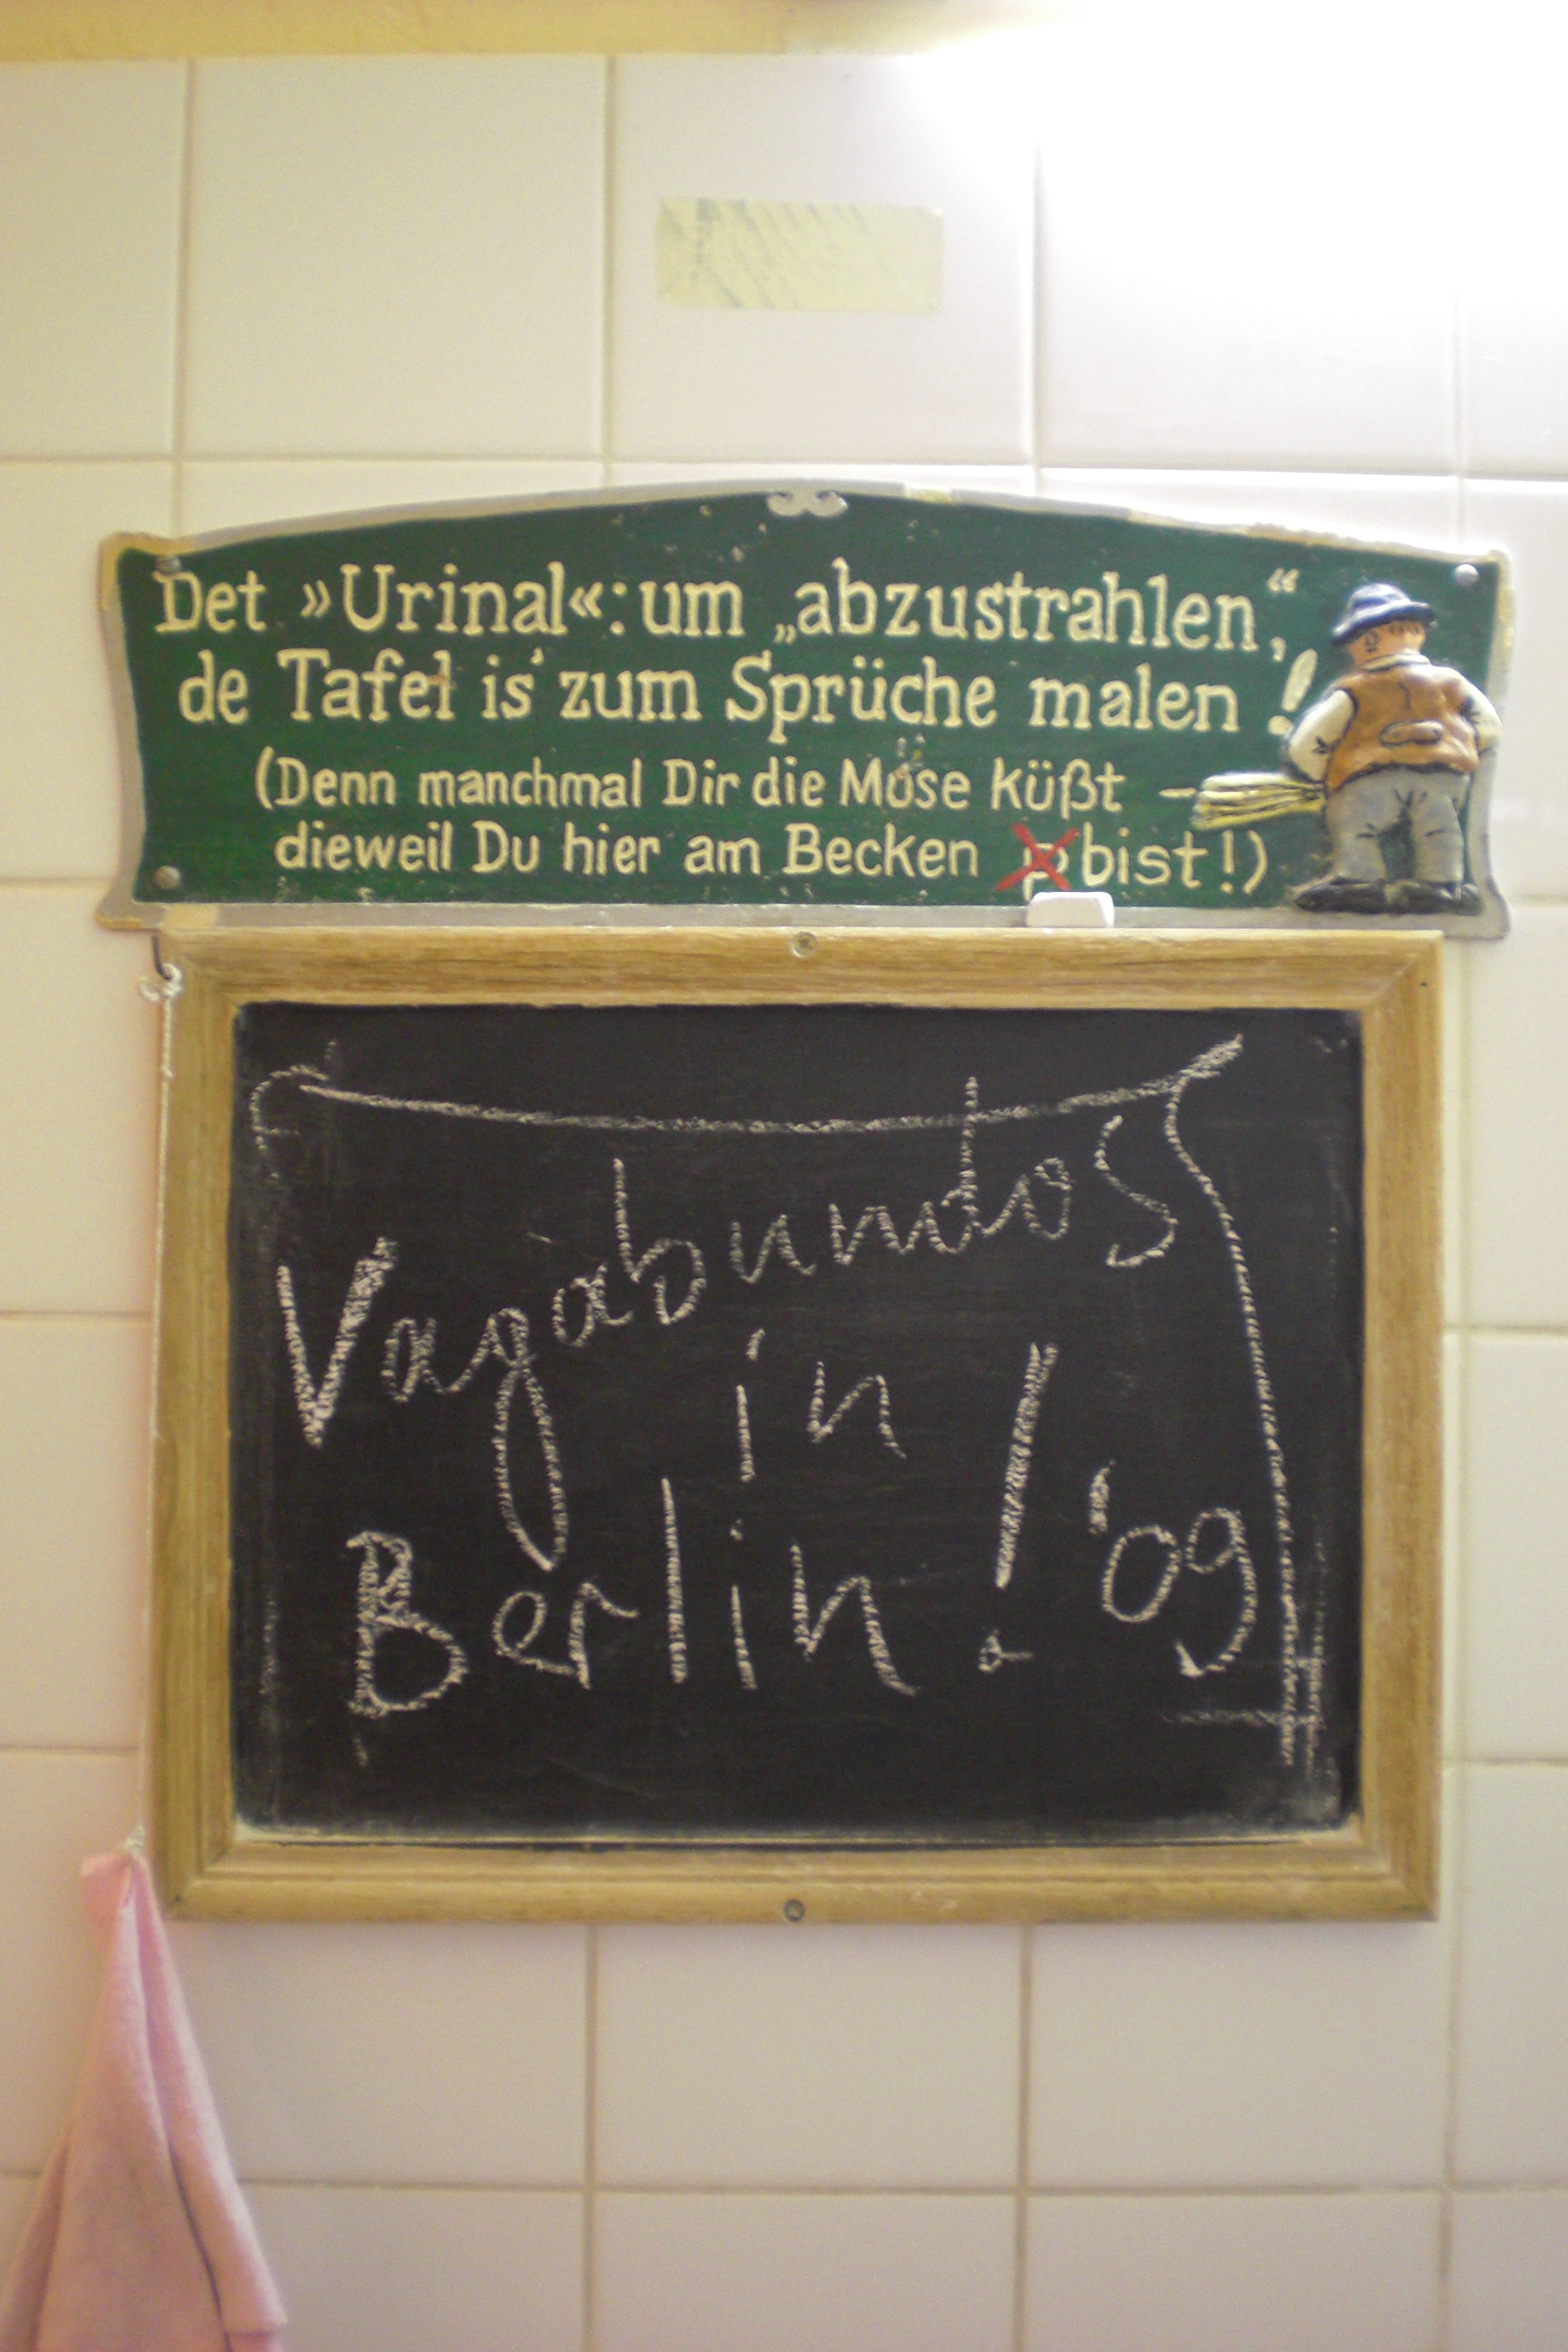 Det »Urinal«: um „abzustrahlen,“
de Tafel is' zum Sprüche malen!
(Denn manchmal Dir die Möse küßt –
dieweil Du hier am Becken p bist!)
Vagabundos
in
Berlin! '09